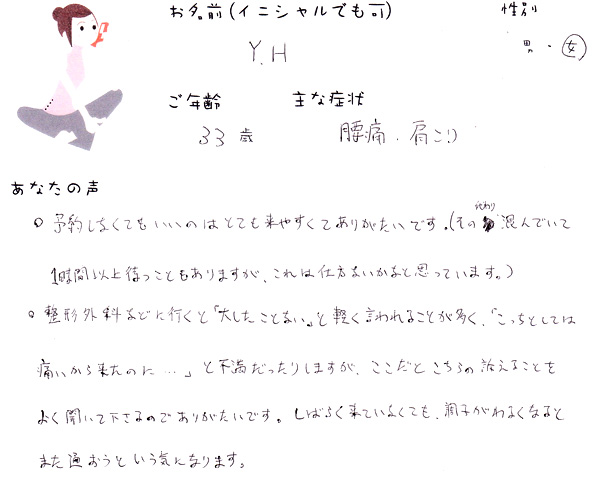 お名前(イニシャルでも可)
性別
Y.H
男・女
ご年齢
主な症状
33歳
腰痛・肩こり
あなたの声
○予約しなくてもいいのはとても来やすくてありがたいです。(その代わり混んでいて
1時間以上待つこともありますが、これは仕方ないかなと思っています。)
○整形外科などに行くと「大したことない。」と軽く言われることが多く、「こっちとしては
痛いから来たのに…」と不満だったりしますが、ここだとこちらの訴えることを
よく聞いて下さるのでありがたいです。しばらく来ていなくても、調子がわるくなると
また通おうという気になります。